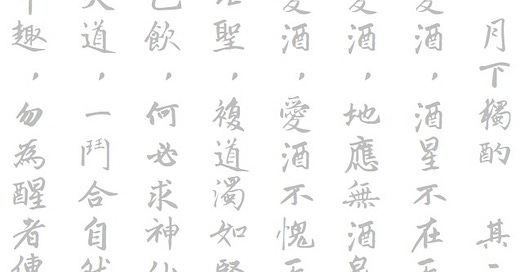 月下獨酌 其
酒，酒星不在
酒，地應無酒泉
酒，愛酒不愧
聖，複道濁如賢
已飲，何必求神仙
大道，一鬥合自然
趣，勿為醒者傳